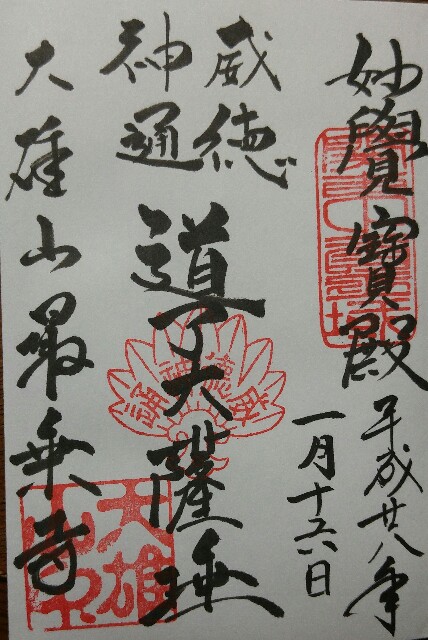 妙覺寶殿
平成廿八年
一月十六日
威徳
神通
道了大薩埵
大雄山最乗寺